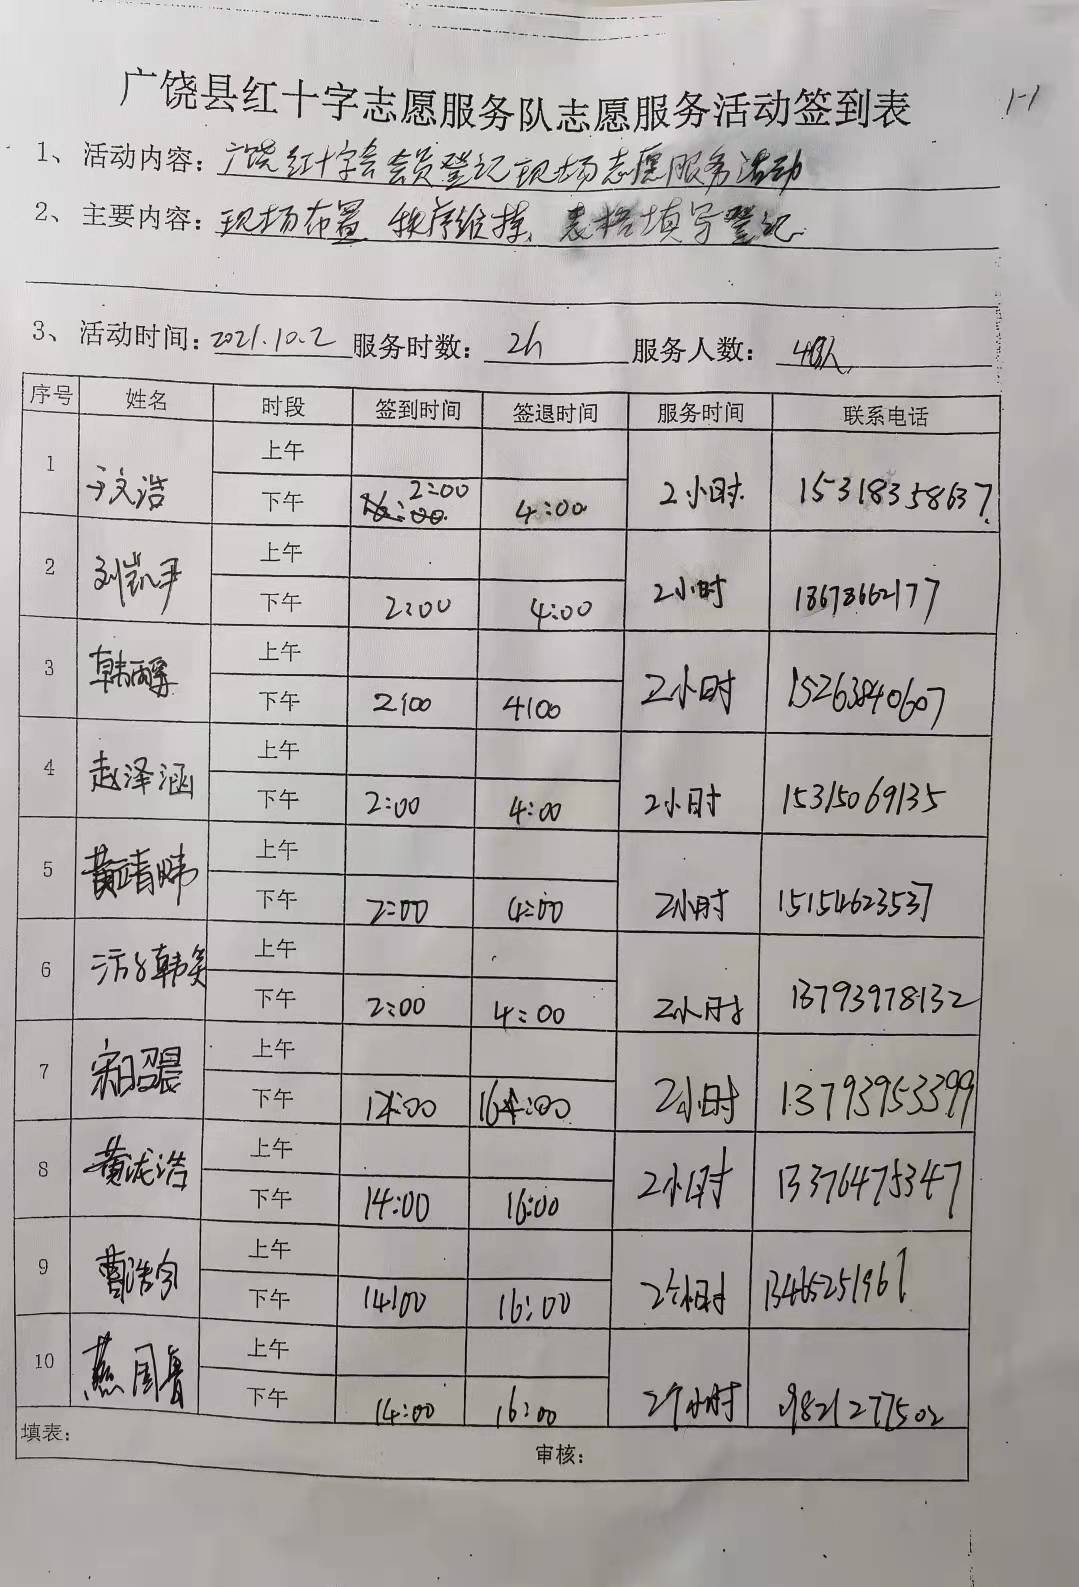 广饶县红十字志愿服务队志愿服务活动签到表
1-1
1、活动内容：广饶红十字会会员登记现场志愿服务活动
2、主要内容：现场布置 秩序维护、表格填写登记
3、活动时间：2021.10.2 服务时数：2h 服务人数：人
序号 姓名 时段 签到时间 签退时间 服务时间 联系电话
1 于文浩 上午
下午 2:00 4:00 2小时 15318358637
2 上午
下午 2:00 4:00 2小时 18678662177
3 上午
下午 2:00 4:00 2小时 15263840607
4 赵泽涵 上午
下午 2:00 4:00 2小时 15315069135
5 上午
下午 2:00 4:00 2小时 15154623537
6 上午
下午 2:00 4:00 2小时 13793978132
7 上午
下午 14:00 16:00 2小时 13793953399
8 黄泷浩 上午
下午 14:00 16:00 2小时 13376475347
9 曹浩宇 上午
下午 14:00 16:00 2个小时 13465251961
10 上午
下午 14:00 16:00 2个小时
填表：
审核：